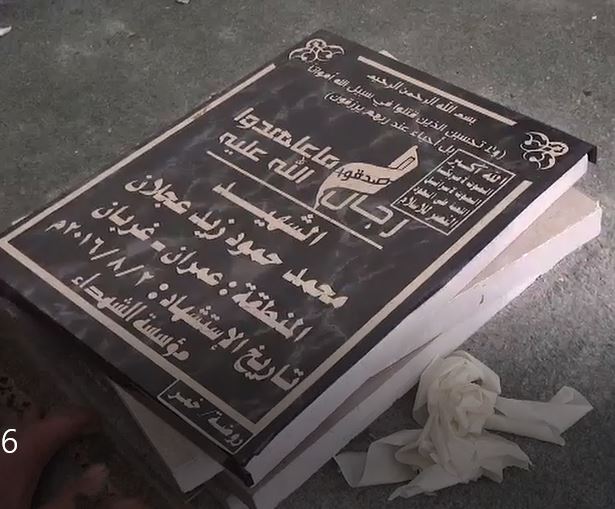 بسم الله الرحمن الرحيم
(ولا تحسبن الذين قتلوا في سبيل الله أمواتاً
بل أحياء عند ربهم يرزقون)
الله أكبر
الموت لأمريكا
الموت لإسرائيل
اللعنة على اليهود
النصر للإسلام
رجال صدقوا ما عاهدوا
الله عليه
الشهيد
محمد حمود زيد عجلان
المنطقة : عمران - غربان
تاريخ الإستشهاد : ٢٠١٦/٨/٢م
مؤسسة الشهداء
روضة / خمر
6